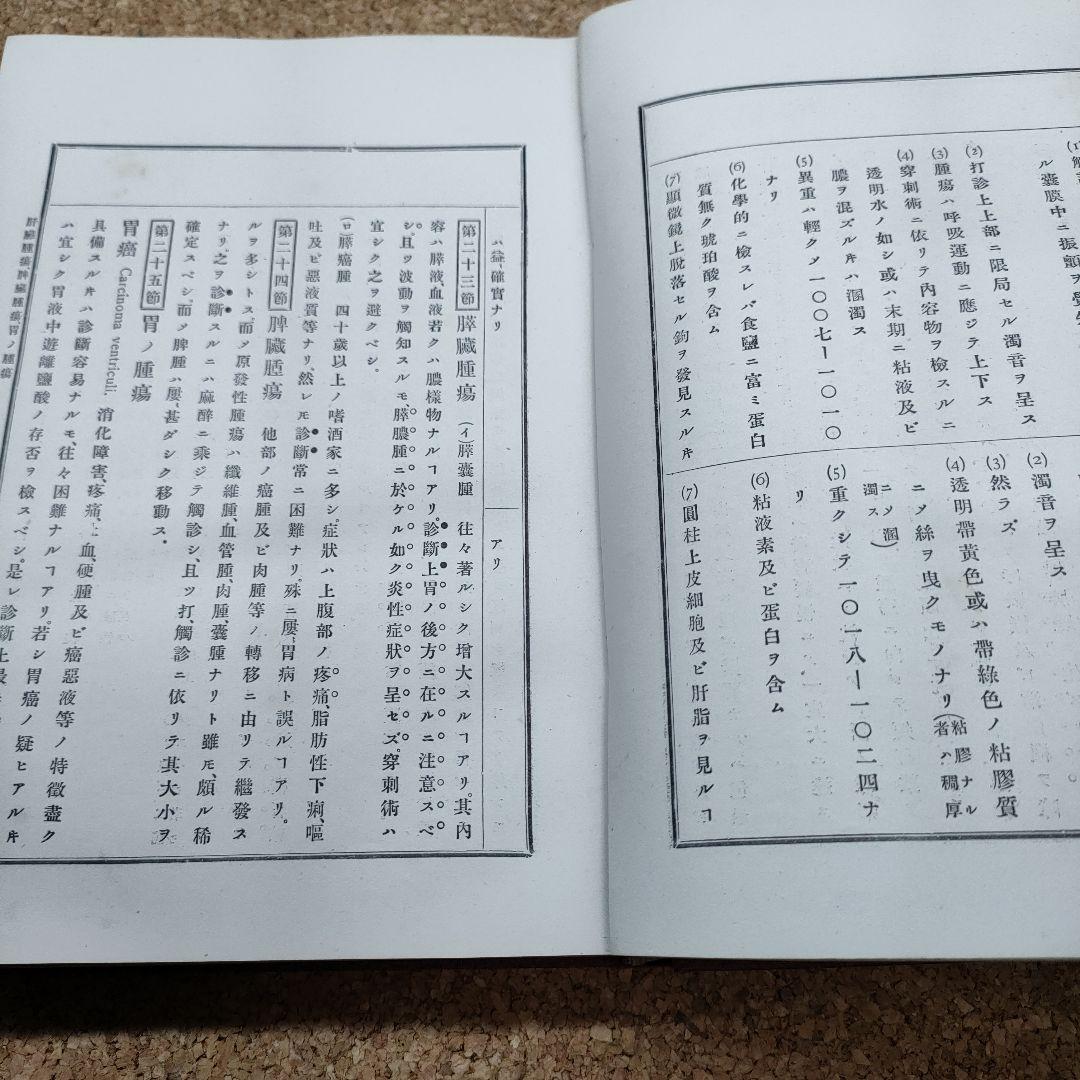 ル嚢膜中ニ振顫ヲ覺
(2)打診上上部ニ限局セル濁音ヲ呈ス
(3)腫瘍ハ呼吸運動ニ應ジテ上下ス
(4)穿刺術ニ依リテ內容物ヲ檢スルニ
透明水ノ如シ或ハ末期ニ粘液及ビ
膿ヲ混ズルキハ溷濁ス
(5)異重ハ輕クメ一〇〇七ー一〇一〇
ナリ
(6)化學的ニ檢スレバ食鹽ニ富ミ蛋白
質無ク琥珀酸ヲ含ム
(7)顯微鏡上脫落セル鉤ヲ發見スルキ
(2)濁音ヲ呈ス
(3)然ラズ
(4)透明帶黃色或ハ帶綠色ノ粘膠質
ニメ絲ヲ曳クモノナリ(粘膠ナル
者ハ稠厚
ニソ溷
濁ス)
(5)重クシテ一〇一八ー一〇二四ナ
リ
(6)粘液素及ビ蛋白ヲ含ム
(7)圓柱上皮細胞及ビ肝脂ヲ見ルヿ
ハ益、確實ナリ
アリ
第二十三節 膵臟腫瘍 (イ)膵嚢腫 往々著ルシク增大スルヿアリ。其內
容ハ膵液、血液若クハ膿樣物ナルヿアリ。診斷上胃ノ後方ニ在ルニ注意スベ
シ、且ツ波動ヲ觸知スルモ、膵膿腫ニ於ケル如ク炎性症狀ヲ呈セズ。穿刺術ハ
宜シク之ヲ避クベシ。
(ロ)膵癌腫 四十歲以上ノ嗜酒家ニ多シ。症狀ハ上腹部ノ疼痛、脂肪性下痢、嘔
吐及ビ惡液質等ナリ、然レモ診斷常ニ困難ナリ。殊ニ屢、胃病ト誤ルヿアリ。
第二十四節 脾臟腫瘍 他部ノ癌腫及ビ肉腫等ノ轉移ニ由リテ繼發ス
ルヲ多シトス。而メ原發性腫瘍ハ纖維腫、血管腫、肉腫、嚢腫ナリト雖モ、頗ル稀
ナリ、之ヲ診斷スルニハ麻醉ニ乘ジテ觸診シ、且ツ打、觸診ニ依リテ其大小ヲ
確定スベシ。而メ脾腫ハ屢、甚ダシク移動ス。
第二十五節 胃ノ腫瘍
胃癌 Carcinoma ventriculi. 消化障害、疼痛、上血、硬腫及ビ癌惡液等ノ特徵盡ク
具備スルキハ診斷容易ナルモ、往々困難ナルヿアリ。若シ胃癌ノ疑ヒアルキ
ハ宜シク胃液中遊離鹽酸ノ存否ヲ檢スベシ。是レ診斷上最
肝臟腫瘍、脾臟腫瘍、胃ノ腫瘍